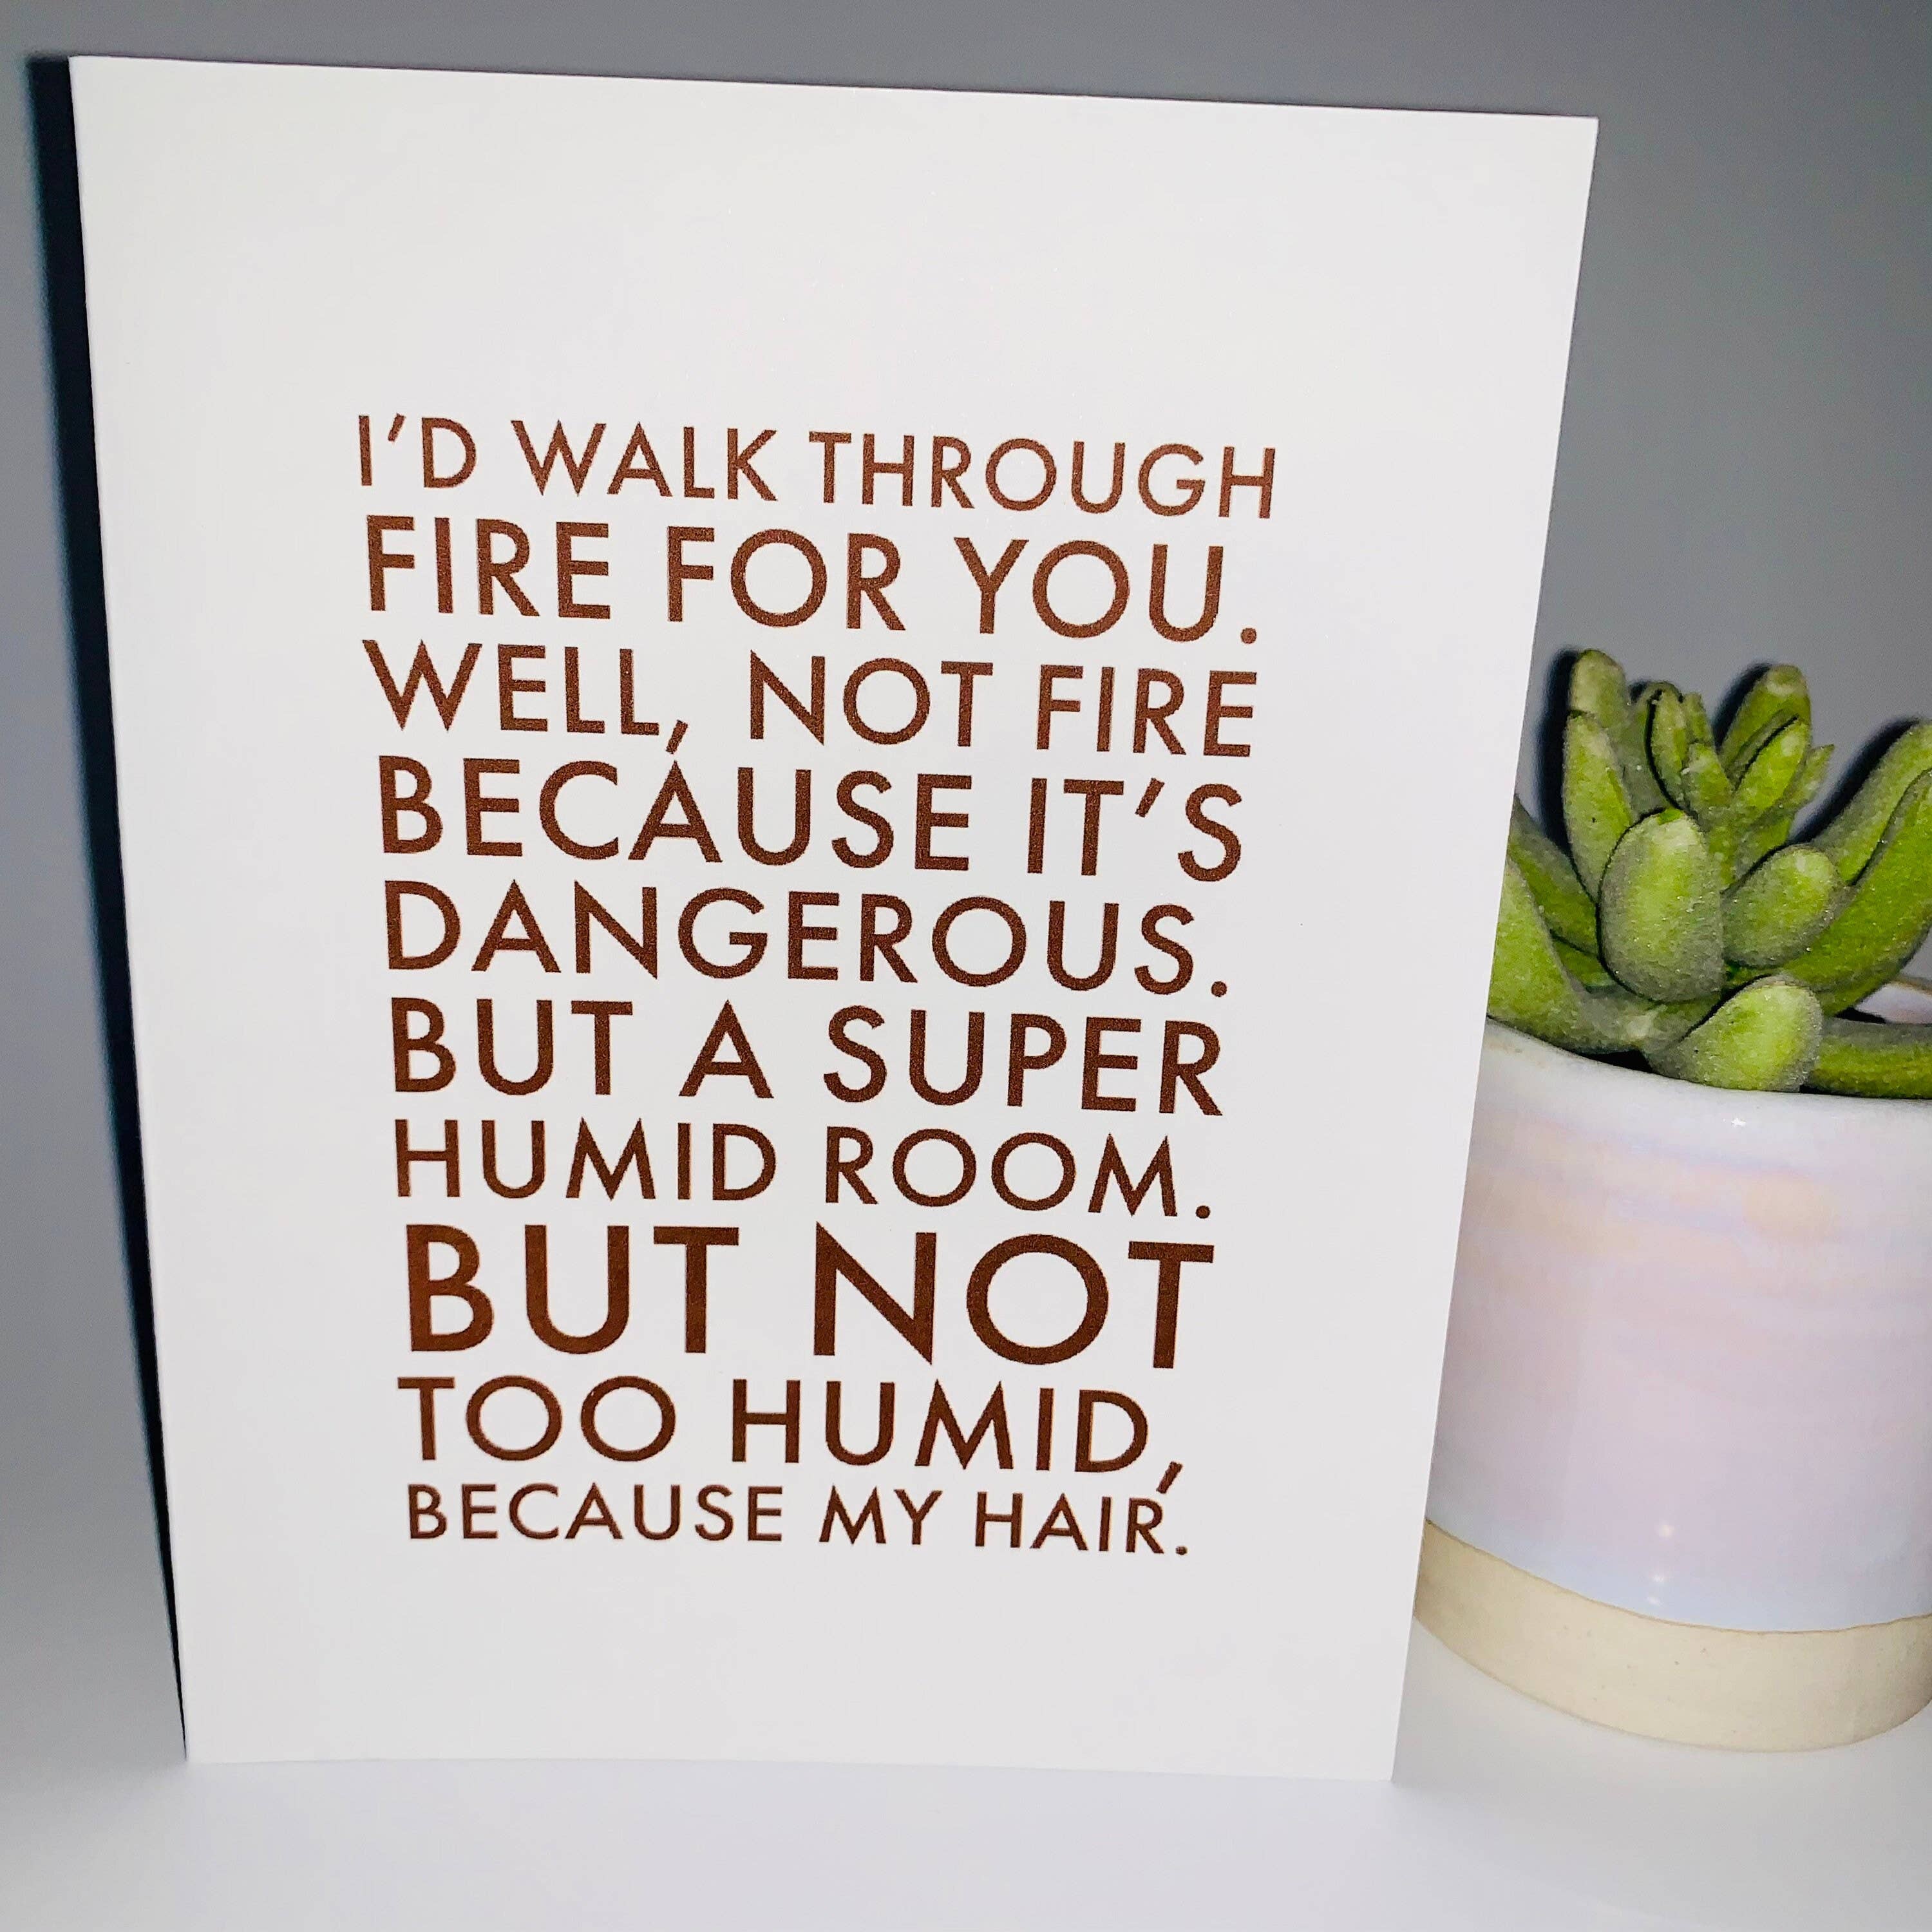 I'D WALK THROUGH
FIRE FOR YOU.
WELL, NOT FIRE
BECAUSE IT'S
DANGEROUS.
BUT A SUPER
HUMID ROOM.
BUT NOT
TOO HUMID,
BECAUSE MY HAIR.